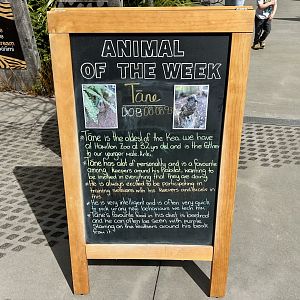 ANIMAL
OF THE WEEK
Tāne
DOB 08.08.93
Tāne is the oldest of the Kea we have
at Hamilton Zoo at 32 yrs old and is the father
to our younger male
Tāne has alot of personality and is a favourite
among Keepers around his habitat, wanting
to be involved in everything that they are doing.
He is always excited to be participating in
training sessions with his Keepers and excels in
this.
He is very intelligent and is often very quick
to pick up any new behaviours we teach him.
Tāne's favourite food in his diet is beetroot
and he can often be seen with purple
staining on the feathers around his beak
from it.